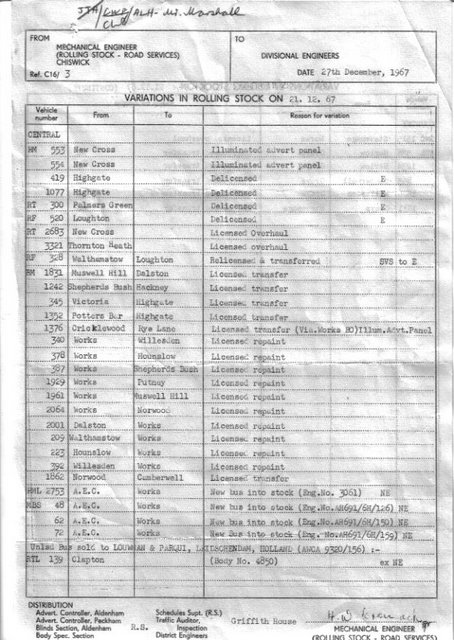 JJA/CWF/ALH - Mr. Marshall
FROM
MECHANICAL ENGINEER
(ROLLING STOCK - ROAD SERVICES)
CHISWICK
Ref. C16/ 3
TO
DIVISIONAL ENGINEERS
DATE 27th December, 1967
VARIATIONS IN ROLLING STOCK ON 21. 12. 67
Vehicle number From To Reason for variation
CENTRAL
RM 553 New Cross Illuminated advert panel
554 New Cross Illuminated advert panel
419 Highgate Delicensed E
1077 Highgate Delicensed E
RT 300 Palmers Green Delicensed E
RF 520 Loughton Delicensed E
RT 2683 New Cross Licensed Overhaul
3321 Thornton Heath Licensed overhaul
RF 328 Walthamstow Loughton Relicensed & transferred SVS to E
RM 1831 Muswell Hill Dalston Licensed transfer
1242 Shepherds Bush Hackney Licensed transfer
345 Victoria Highgate Licensed transfer
1352 Potters Bar Highgate Licensed transfer
1376 Cricklewood Rye Lane Licensed transfer (Via.Works HO)Illum.Advt.Panel
340 Works Willesden Licensed repaint
378 Works Hounslow Licensed repaint
387 Works Shepherds Bush Licensed repaint
1929 Works Putney Licensed repaint
1961 Works Muswell Hill Licensed repaint
2064 Works Norwood Licensed repaint
2001 Dalston Works Licensed repaint
209 Walthamstow Works Licensed repaint
223 Hounslow Works Licensed repaint
392 Willesden Works Licensed repaint
1862 Norwood Camberwell Licensed transfer
RML 2753 A.E.C. Works New bus into stock (Eng.No. 3061) NE
MBS 48 A.E.C. Works New bus into stock (Eng.No.AH691/6H/126) NE
62 A.E.C. Works New bus into stock (Eng.No.AH691/6H/150) NE
72 A.E.C. Works New Bus into stock (Eng.No.AH691/6H/159) NE
Bus sold to LOUWMAN & PARQUI, LEITSCHENDAM, HOLLAND (AWOA 9320/156) :-
RTL 139 Clapton (Body No. 4850) ex NE
DISTRIBUTION
Advert. Controller, Aldenham
Advert. Controller, Peckham
Blinds Section, Aldenham
Body Spec. Section
R.S.
Schedules Supt. (R.S.)
Traffic Auditor,
Inspection
District Engineers
Griffith House
MECHANICAL ENGINEER
(ROLLING STOCK - ROAD SERVICES)